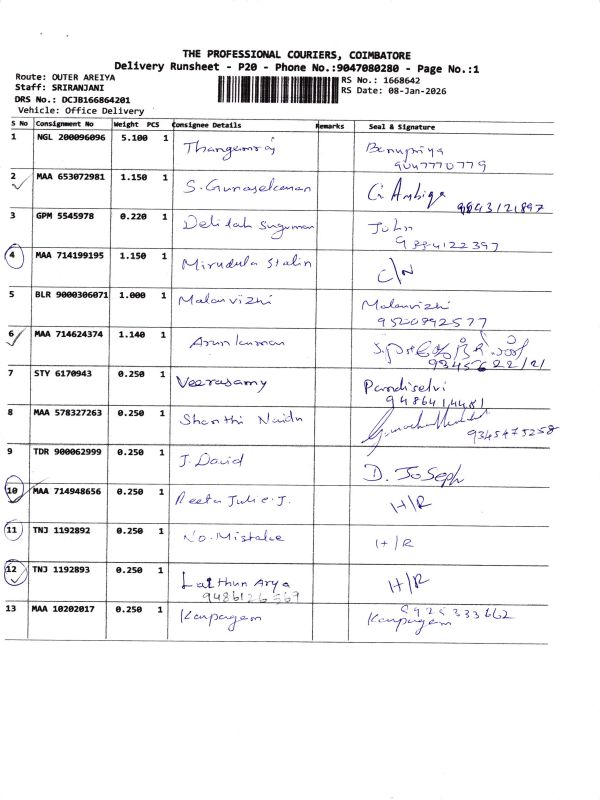 THE PROFESSIONAL COURIERS, COIMBATORE
Delivery Runsheet - P20 - Phone No.:9047080280 - Page No.:1
Route: OUTER AREIYA
RS No.: 1668642
Staff: SRIRANJANI
RS Date: 08-Jan-2026
DRS No.: DCJB166864201
Vehicle: Office Delivery
S No Consignment No Weight PCS Consignee Details Remarks Seal & Signature
1 NGL 200096096 5.100 1 Thangamraj Banupriya
9047770779
2 MAA 653072981 1.150 1 S. Gunasekaran G. Ambiga
9843121897
3 GPM 5545978 0.220 1 Delilah Suguman John
9384122397
4 MAA 714199195 1.150 1 Mirudula Stalin C/N
5 BLR 9000306071 1.000 1 Malarvizhi Malarvizhi
9520892577
6 MAA 714624374 1.140 1 Arun kumar
7 STY 6170943 0.250 1 Veerasamy Pandiselvi
9486414481
8 MAA 578327263 0.250 1 Shanthi Naidu
9345475258
9 TDR 900062999 0.250 1 J. David D. Joseph
10 MAA 714948656 0.250 1 Reeta Julie. J. H/R
11 TNJ 1192892 0.250 1 No. Mistake H/R
12 TNJ 1192893 0.250 1 Lalthun Arya H/R
9486126569
13 MAA 10202017 0.250 1 Karpagam Karpagam